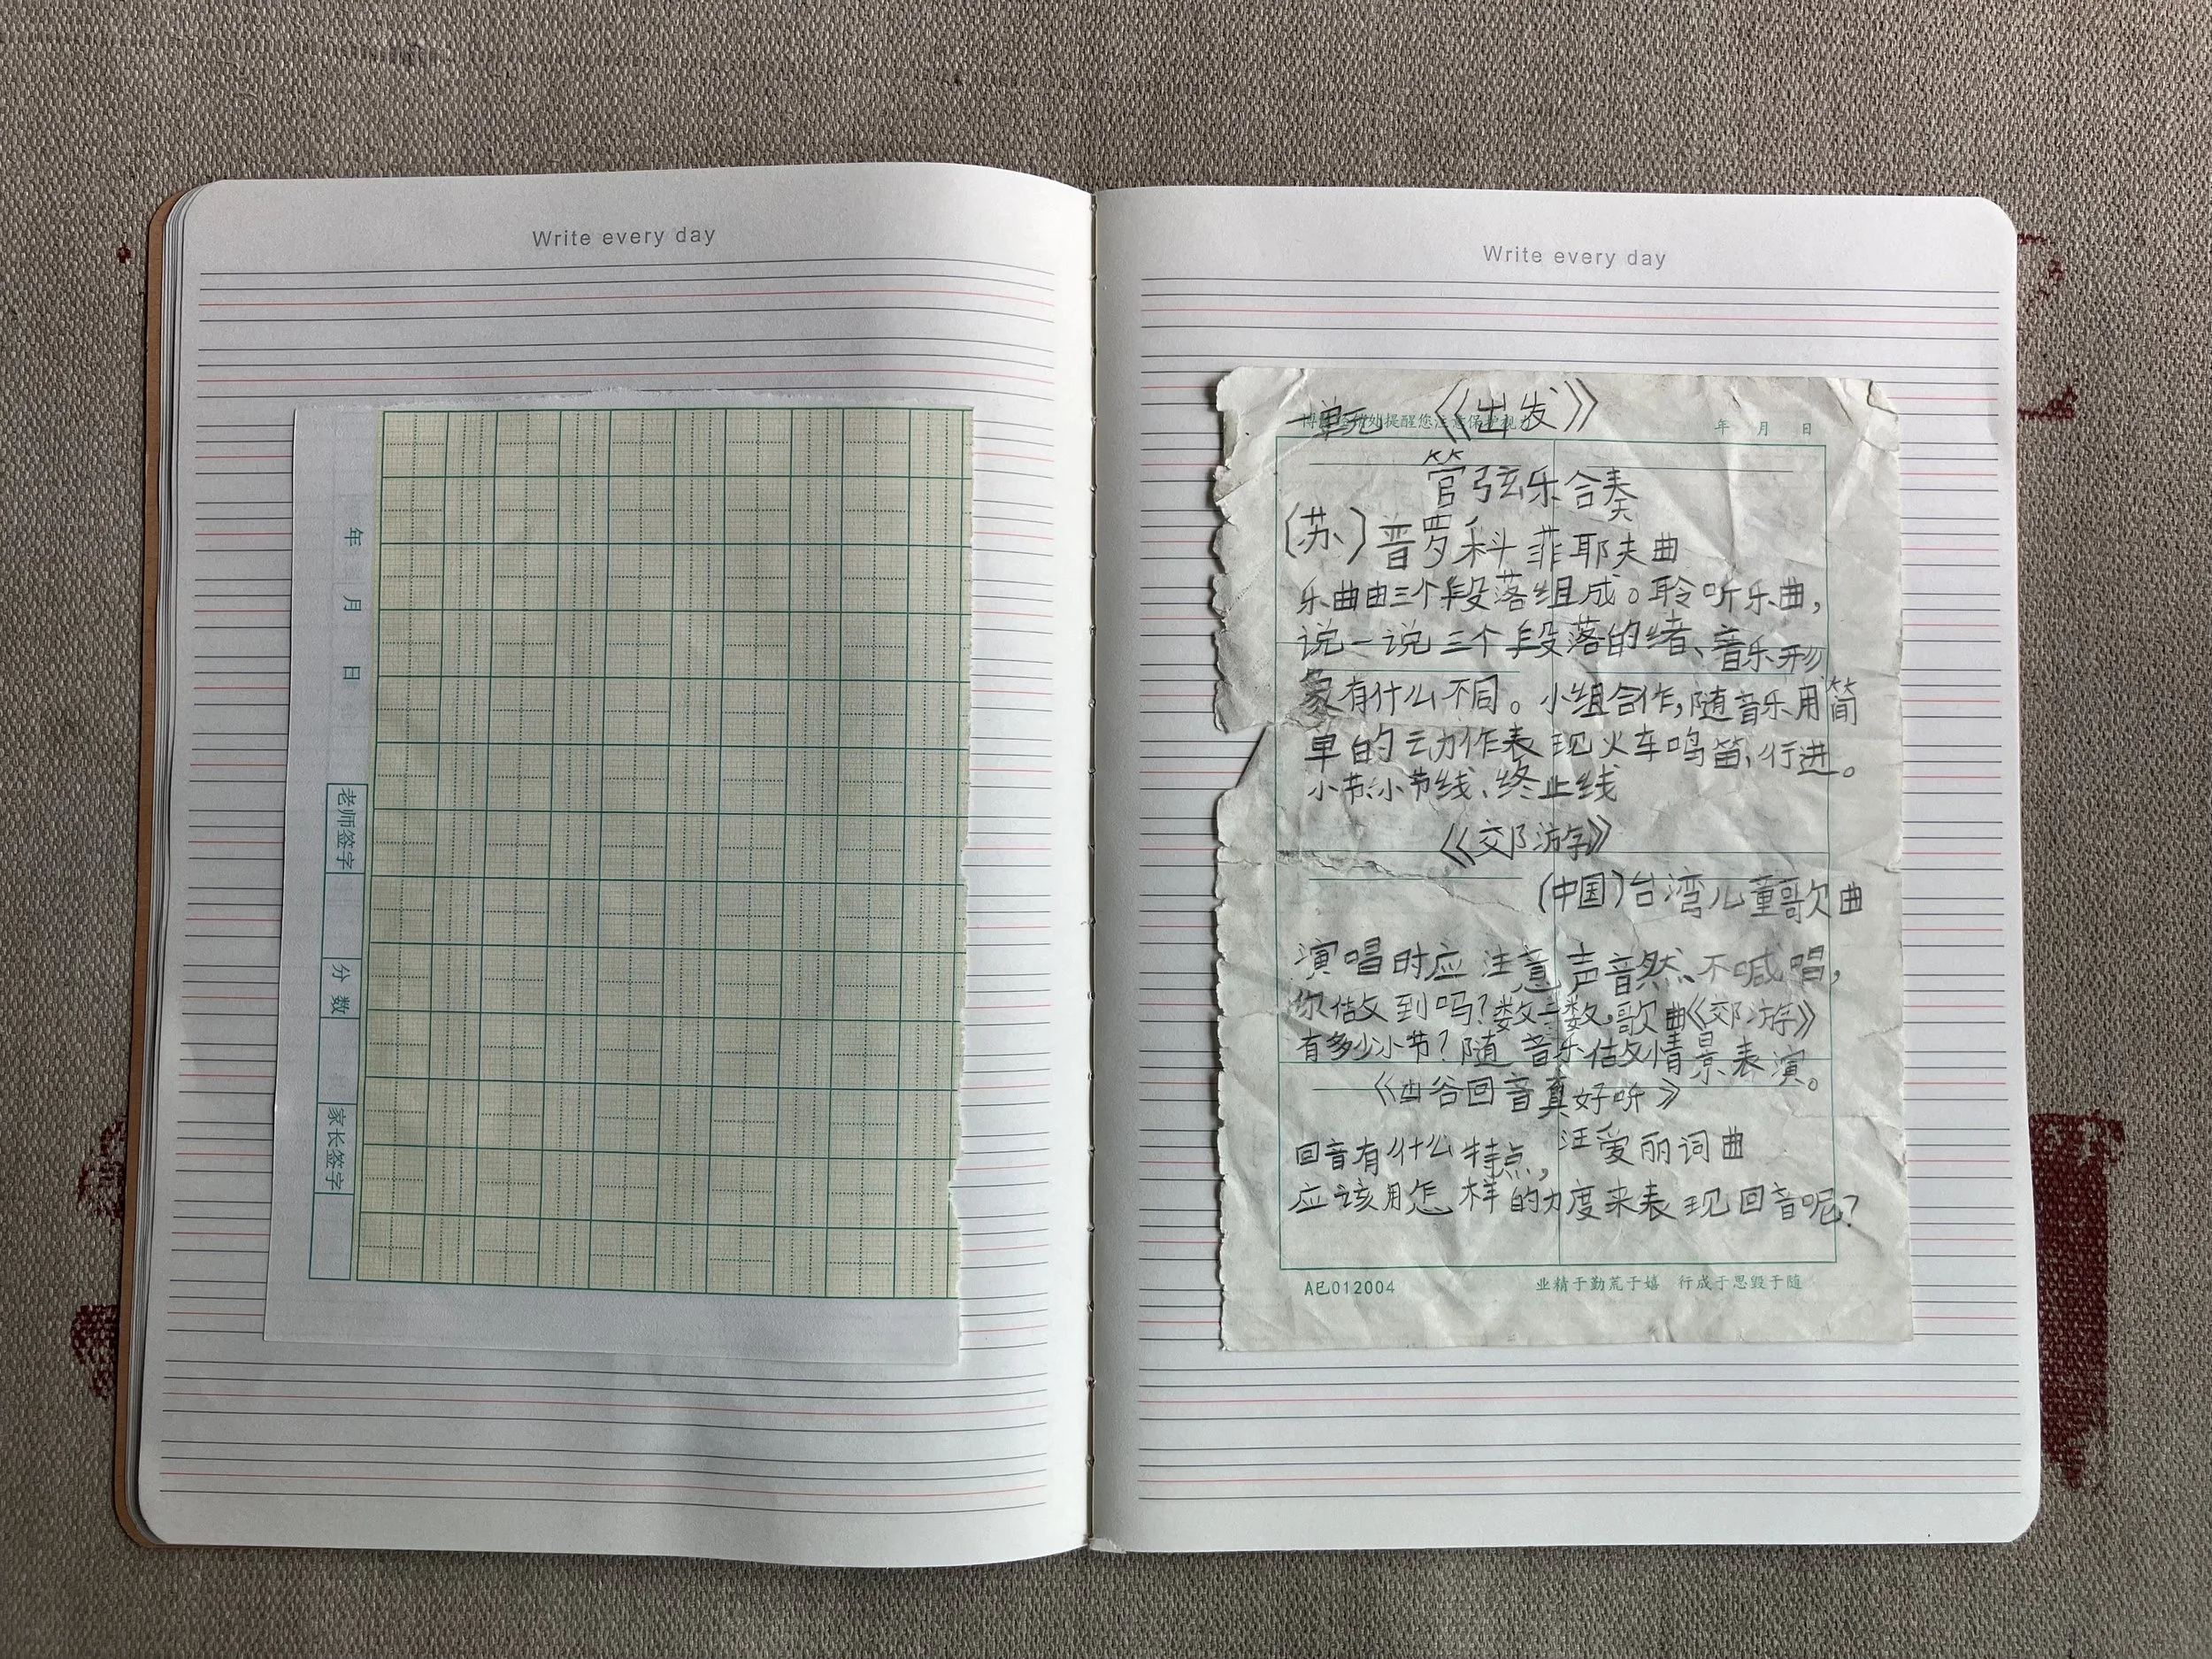 Write every day
年 月 日
老师签字
分数
家长签字
Write every day
年 月 日
一单元 《出发》
管弦乐合奏
(苏)普罗科菲耶夫曲
乐曲由三个段落组成。聆听乐曲,
说一说三个段落的绪、音乐形
象有什么不同。小组合作,随音乐用简
单的动作表现火车鸣笛、行进。
小节、小节线、终止线
《郊游》
(中国)台湾儿童歌曲
演唱时应注意声音然、不喊唱,
你做到吗?数一数,歌曲《郊游》
有多少小节?随音乐做情景表演。
《山谷回音真好听》
汪爱丽词曲
回音有什么特点,
应该用怎样的力度来表现回音呢?
A已012004 业精于勤荒于嬉 行成于思毁于随